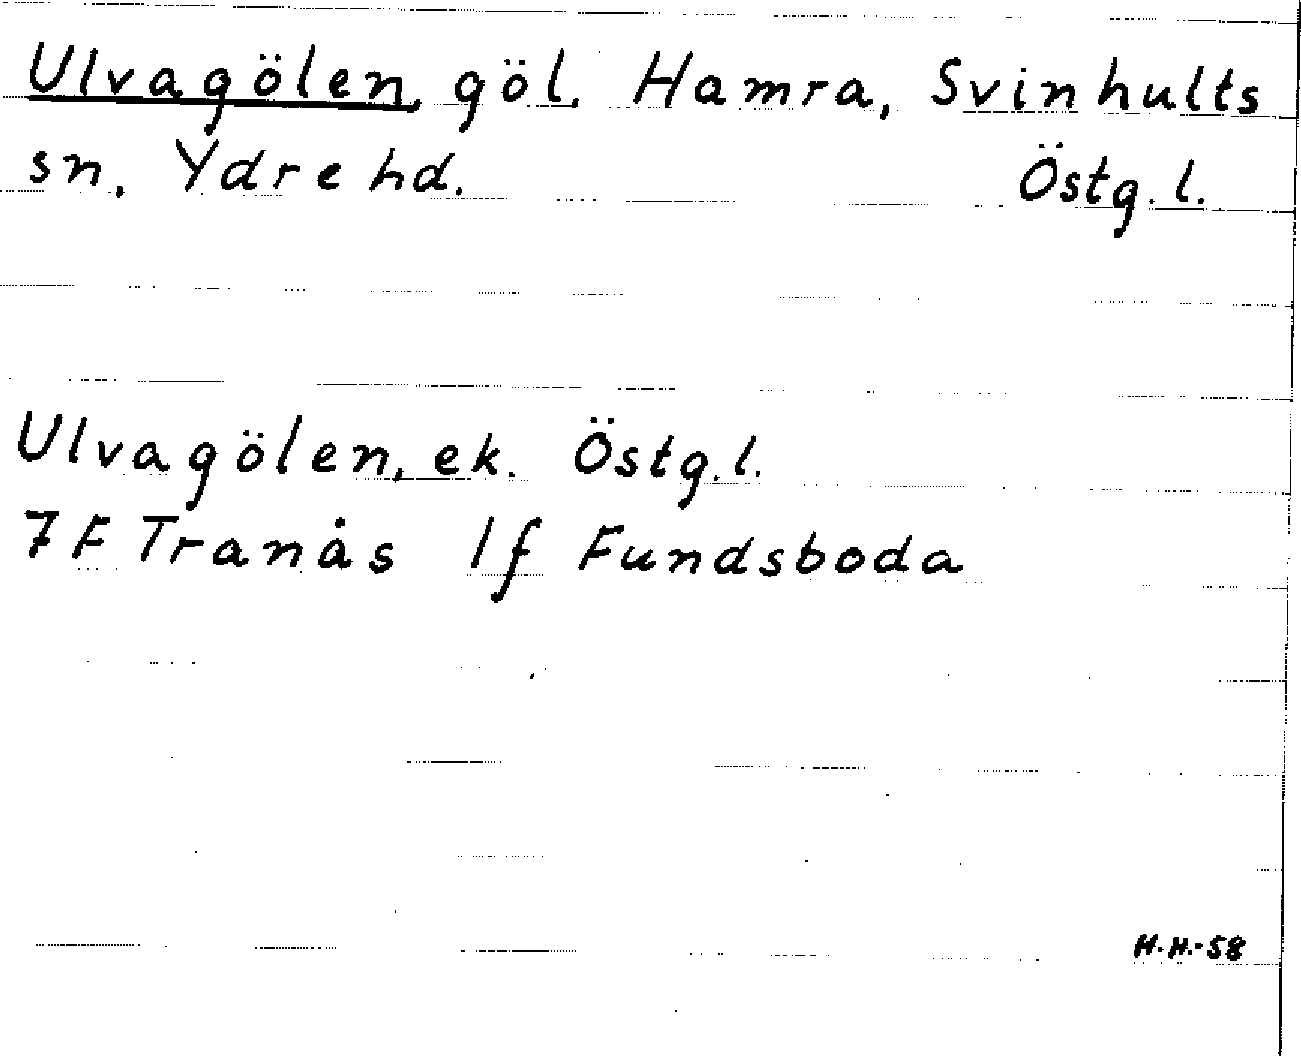 Ulvagölen, göl. Hamra, Svinhults
sn. Ydre hd. Östg. l.
Ulvagölen, ek. Östg. l.
7F Tranås 1f Fundsboda
H.H.-58